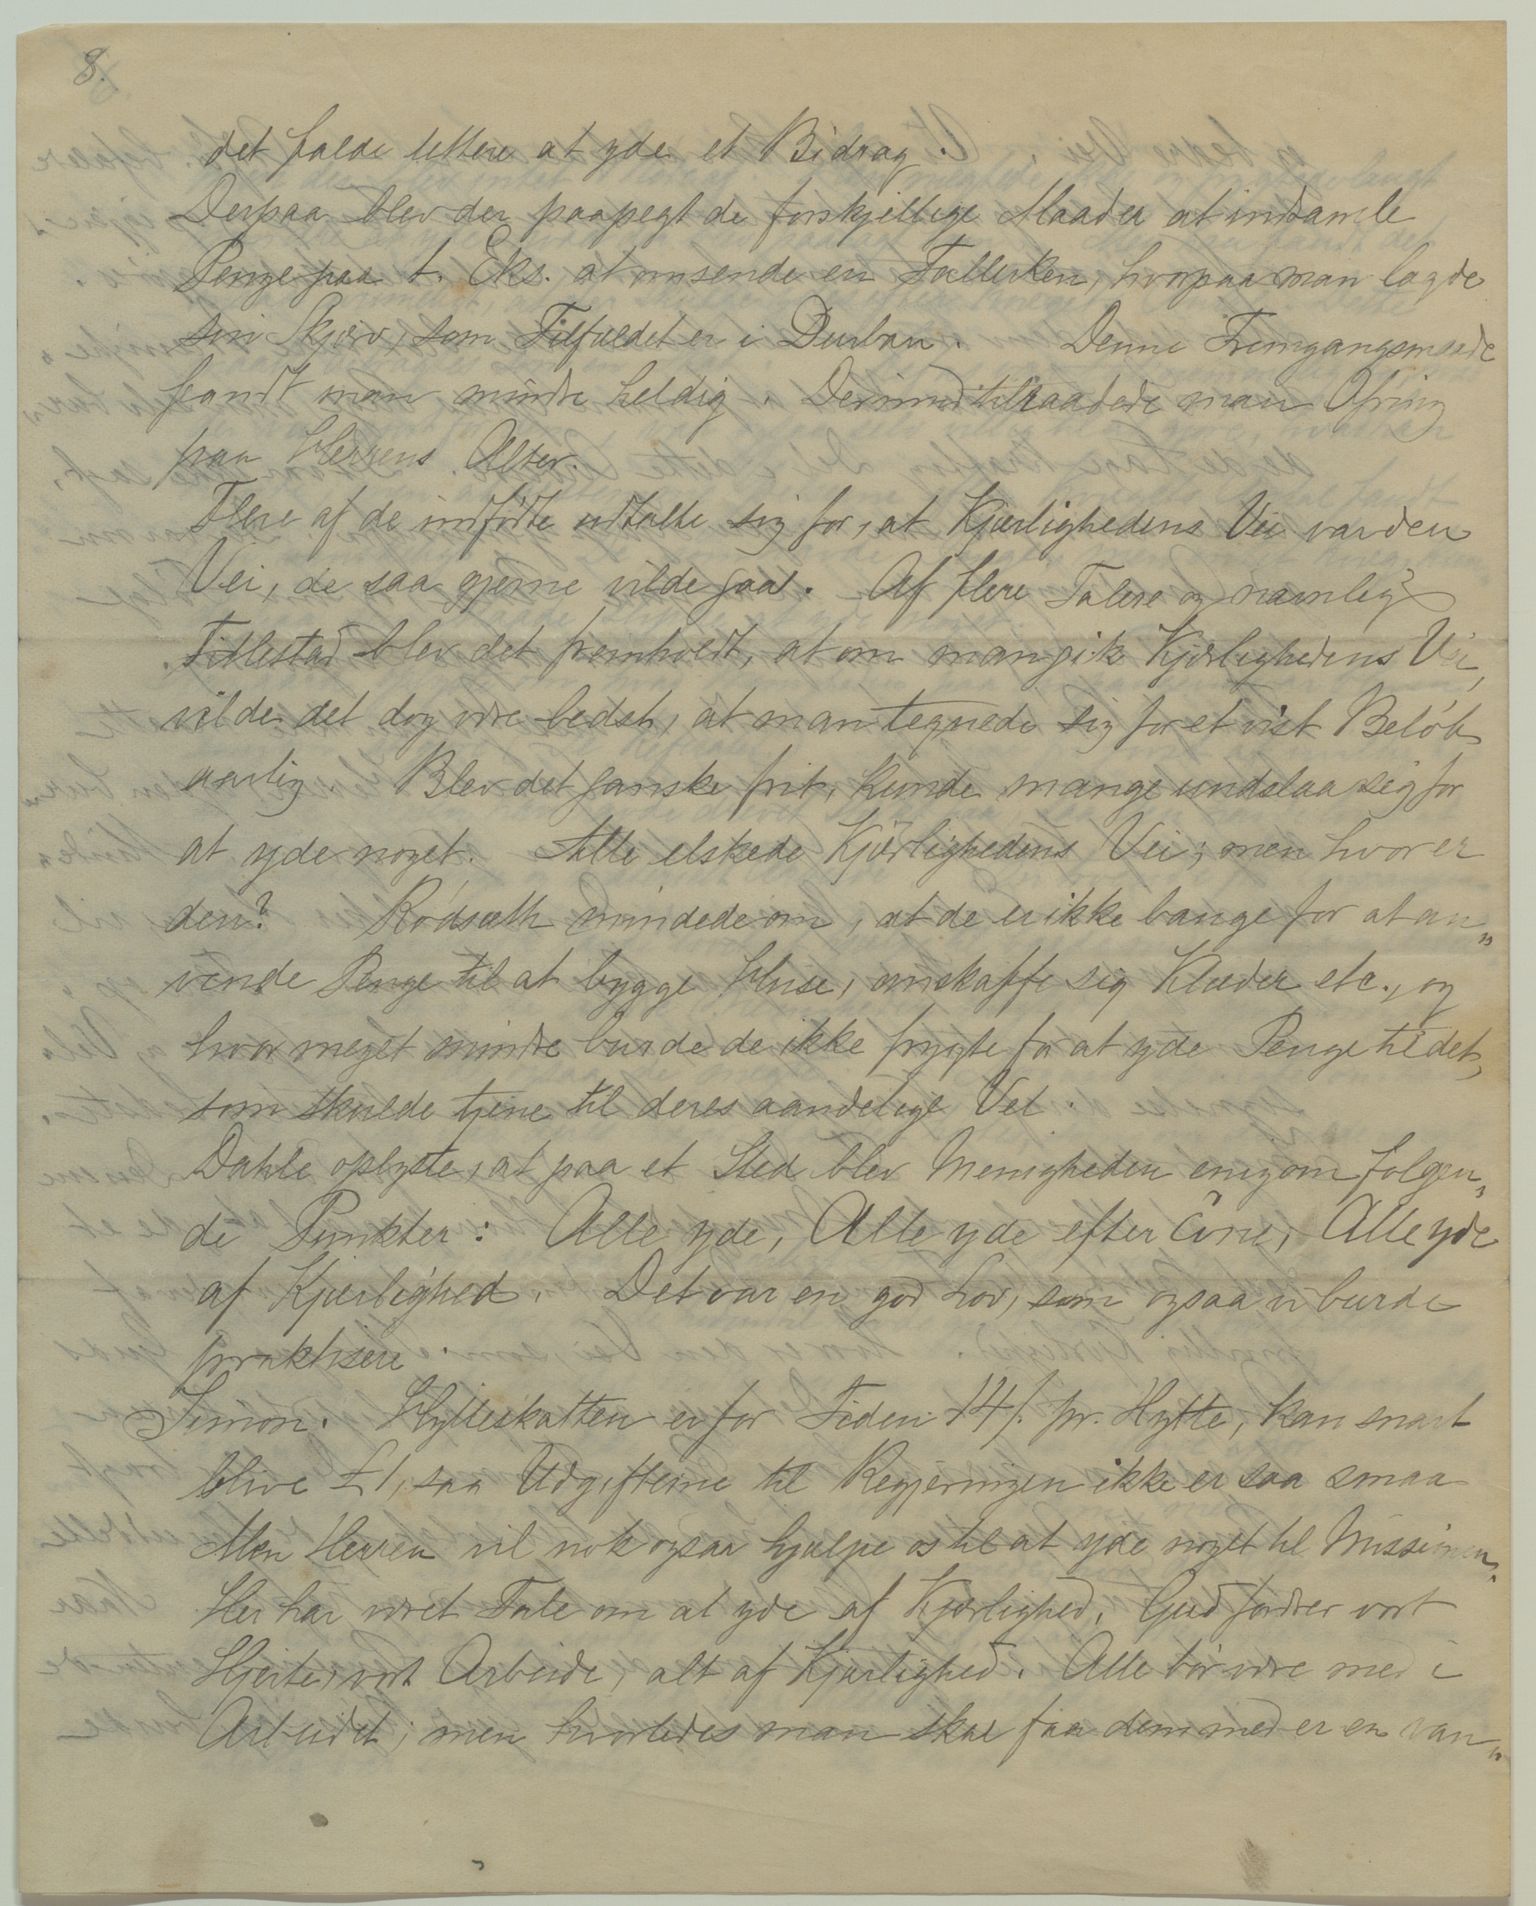 8.
det falde lettere at yde et Bidrag.
Derpaa blev der paapegt de forskjellige Maader at indsamle
Penge paa t. Eks. at omsende en Tallerken, hvorpaa man lagde
sin Skjærv, som Tilfældet er i Durban. Denne Fremgangsmaade
fandt man mindre heldig. Derimod tilraadede man Ofring
paa Herrens Alter.
Flere af de indfødte udtalte sig for, at Kjærlighedens Vei var den
Vei, de saa gjerne vilde gaa. Af flere Talere og navnlig
Titlestad blev det fremholdt, at om man gik Kjærlighedens Vei,
vilde det dog være bedst, at man tegnede sig for et vist Beløb
aarlig Blev det ganske frit, kunde mange undslaa sig for
at yde noget. Alle elskede Kjærlighedens Vei; men hvor er
den? Rødsæth mindede om, at de er ikke bange for at an„
vende Penge til at bygge Huse, anskaffe sig Klæder etc., og
hvor meget mindre burde de ikke frygte for at yde Penge til det,
som skulde tjene til deres aandelige Vel.
Dahle oplyste, at paa et Sted blev Menigheden enig om følgen„
de Punkter: Alle yde, Alle yde efter Evne, Alle yde
af Kjærlighed. Det var en god Lov, som ogsaa vi burde
praktisere.
Simon. Hytteskatten er for Tiden 14/. pr. Hytte, kan snart
blive £1, saa Udgifterne til Regjeringen ikke er saa smaa
Men Herren vil nok ogsaa hjælpe os til at yde noget til Missionen.
Her har været Tale om at yde af Kjærlighed. Gud fordrer vort
Hjerte, vort Arbeide, alt af Kjærlighed. Alle bør være med i
Arbeidet; men hvorledes man skal faa dem med er en van„